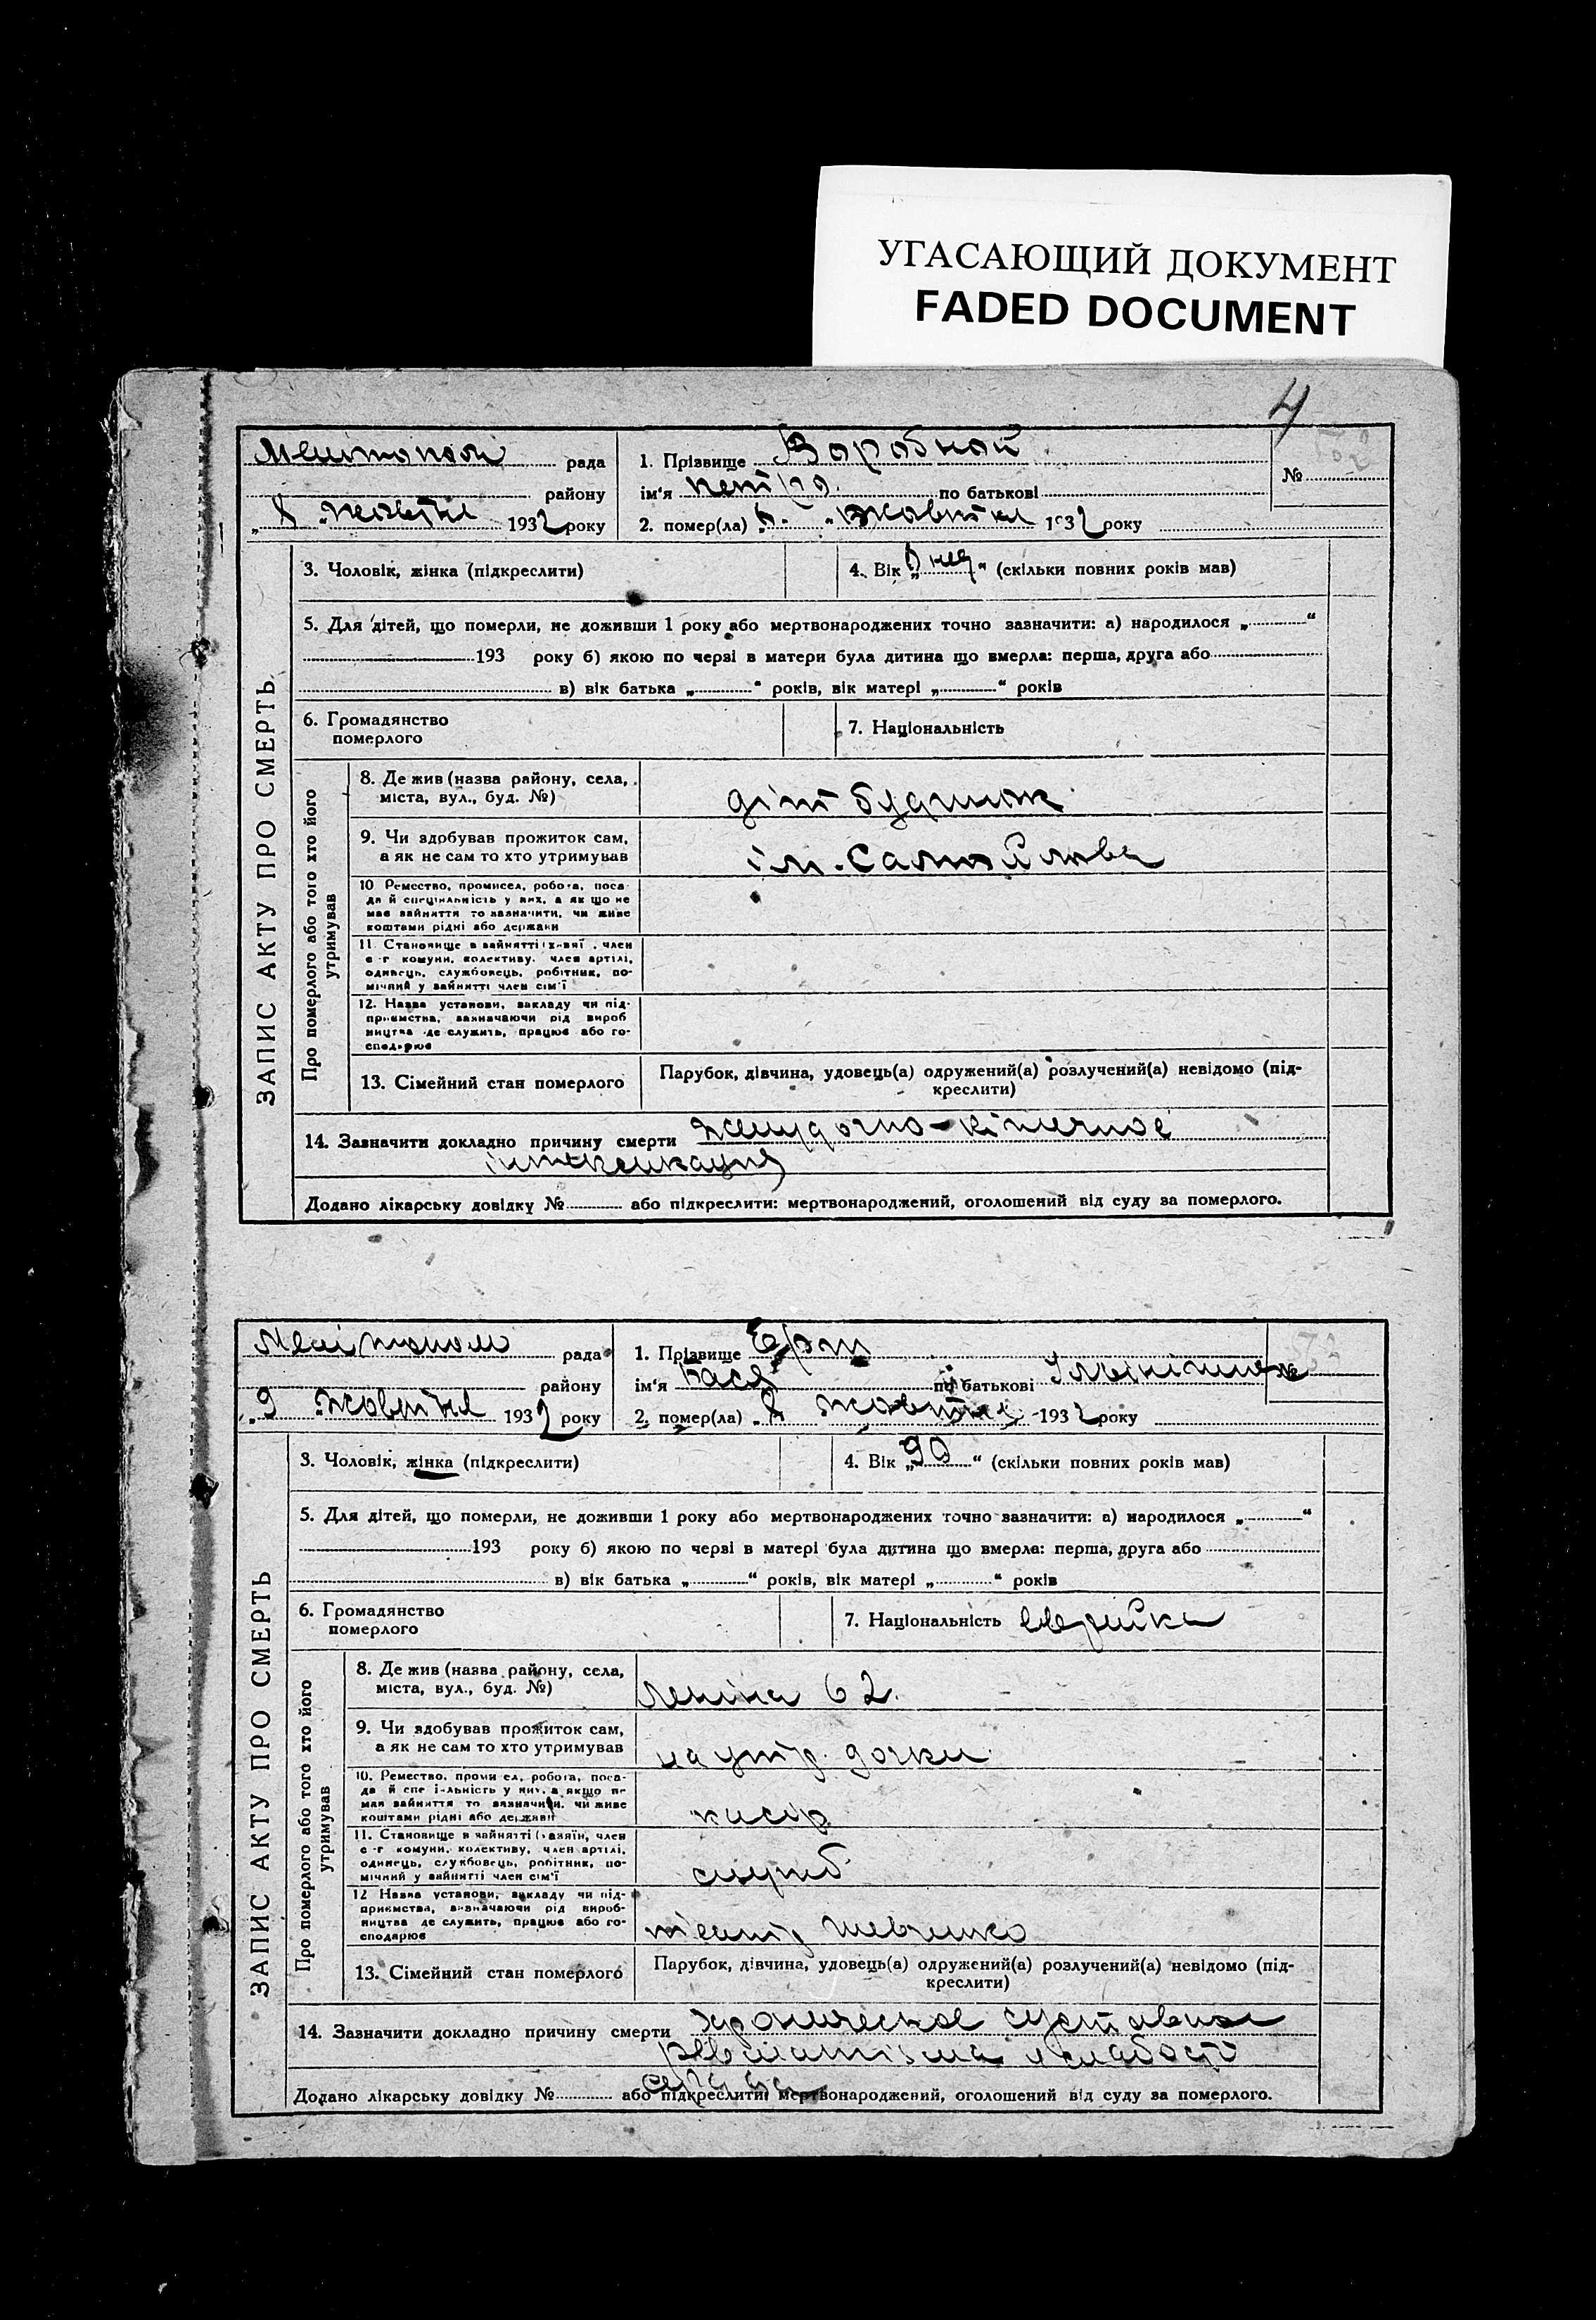 УГАСАЮЩИЙ ДОКУМЕНТ
FADED DOCUMENT
4
ЗАПИС АКТУ ПРО СМЕРТЬ
рада
1. Прізвище
№
району
ім'я Петро по батькові
Жовтня 1932 року
2. помер(ла) Жовтня 1932 року
3. Чоловік, жінка (підкреслити)
4. Вік „ “ (скільки повних років мав)
5. Для дітей, що померли, не доживши 1 року або мертвонароджених точно зазначити: а) народилося „ “
193 року б) якою по черзі в матери була дитина що вмерла: перша, друга або
в) вік батька „ “ років, вік матері „ “ років
6. Громадянство
померлого
7. Національність
Про померлого або того хто його
утримував
8. Де жив (назва району, села,
міста, вул., буд. №)
діт будинок
9. Чи здобував прожиток сам,
а як не сам то хто утримував
ім. Самойлова
10 Ремество, промисел, робота, поса-
да й спеціяльність у них, а як що не
має зайняття то зазначити, чи живе
коштами рідні або держави
11. Становище в зайнятті член
с-г комуни, колективу, член артілі,
одинець, службовець, робітник, по-
мічний у зайнятті член сім'ї
12. Назва установи, закладу чи під-
приємства, зазначаючи рід вироб
ництва де служить, працює або го-
сподарює
13. Сімейний стан померлого
Парубок, дівчина, удовець(а) одружений(а) розлучений(а) невідомо (під-
креслити)
14. Зазначити докладно причину смерти желудочно-кішечное
Додано лікарську довідку № або підкреслити: мертвонароджений, оголошений від суду за померлого.
ЗАПИС АКТУ ПРО СМЕРТЬ
рада
1. Прізвище Ерт
району
ім'я Бася по батькові
„9 Жовтня 1932 року
2. помер(ла) „8 Жовтня 1932 року
3. Чоловік, жінка (підкреслити)
4. Вік „90“ (скільки повних років мав)
5. Для дітей, що померли, не доживши 1 року або мертвонароджених точно зазначити: а) народилося „ “
193 року б) якою по черзі в матері була дитина що вмерла: перша, друга або
в) вік батька „ “ років, вік матері „ “ років
6. Громадянство
померлого
7. Національність еврейка
Про померлого або того хто його
утримував
8. Де жив (назва району, села,
міста, вул., буд. №)
Леніна 62.
9. Чи здобував прожиток сам,
а як не сам то хто утримував
на утр. дочки
10. Ремество, проми ел, робота, поса-
да й спе і-льність у них, а якщо не
має зайняття то зазначити, чи живе
коштами рідні або держави
касір
11. Становище в зайнятті (хазяїн, член
с-г комуни, колективу, член артілі,
одинець, службовець, робітник, по-
мічний у зайнятті член сім'ї
служб
12 Назва установи, закладу чи під-
приємства, зазначаючи рід вироб-
ництва де служить, працює або го-
сподарює
театр Шевченко
13. Сімейний стан померлого
Парубок, дівчина, удовець(а) одружений(а) розлучений(а) невідомо (під-
креслити)
14. Зазначити докладно причину смерти хроническое суставное
ревматізма и слабості
сердца
Додано лікарську довідку № або підкреслити: мертвонароджений, оголошений від суду за померлого.